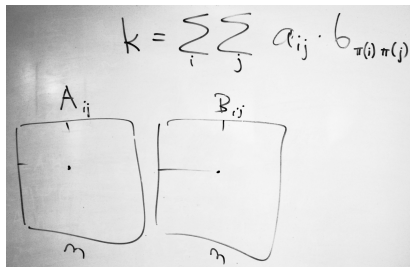 k = ∑_i ∑_j a_ij · b_π(i)π(j)
A_ij B_ij
n n